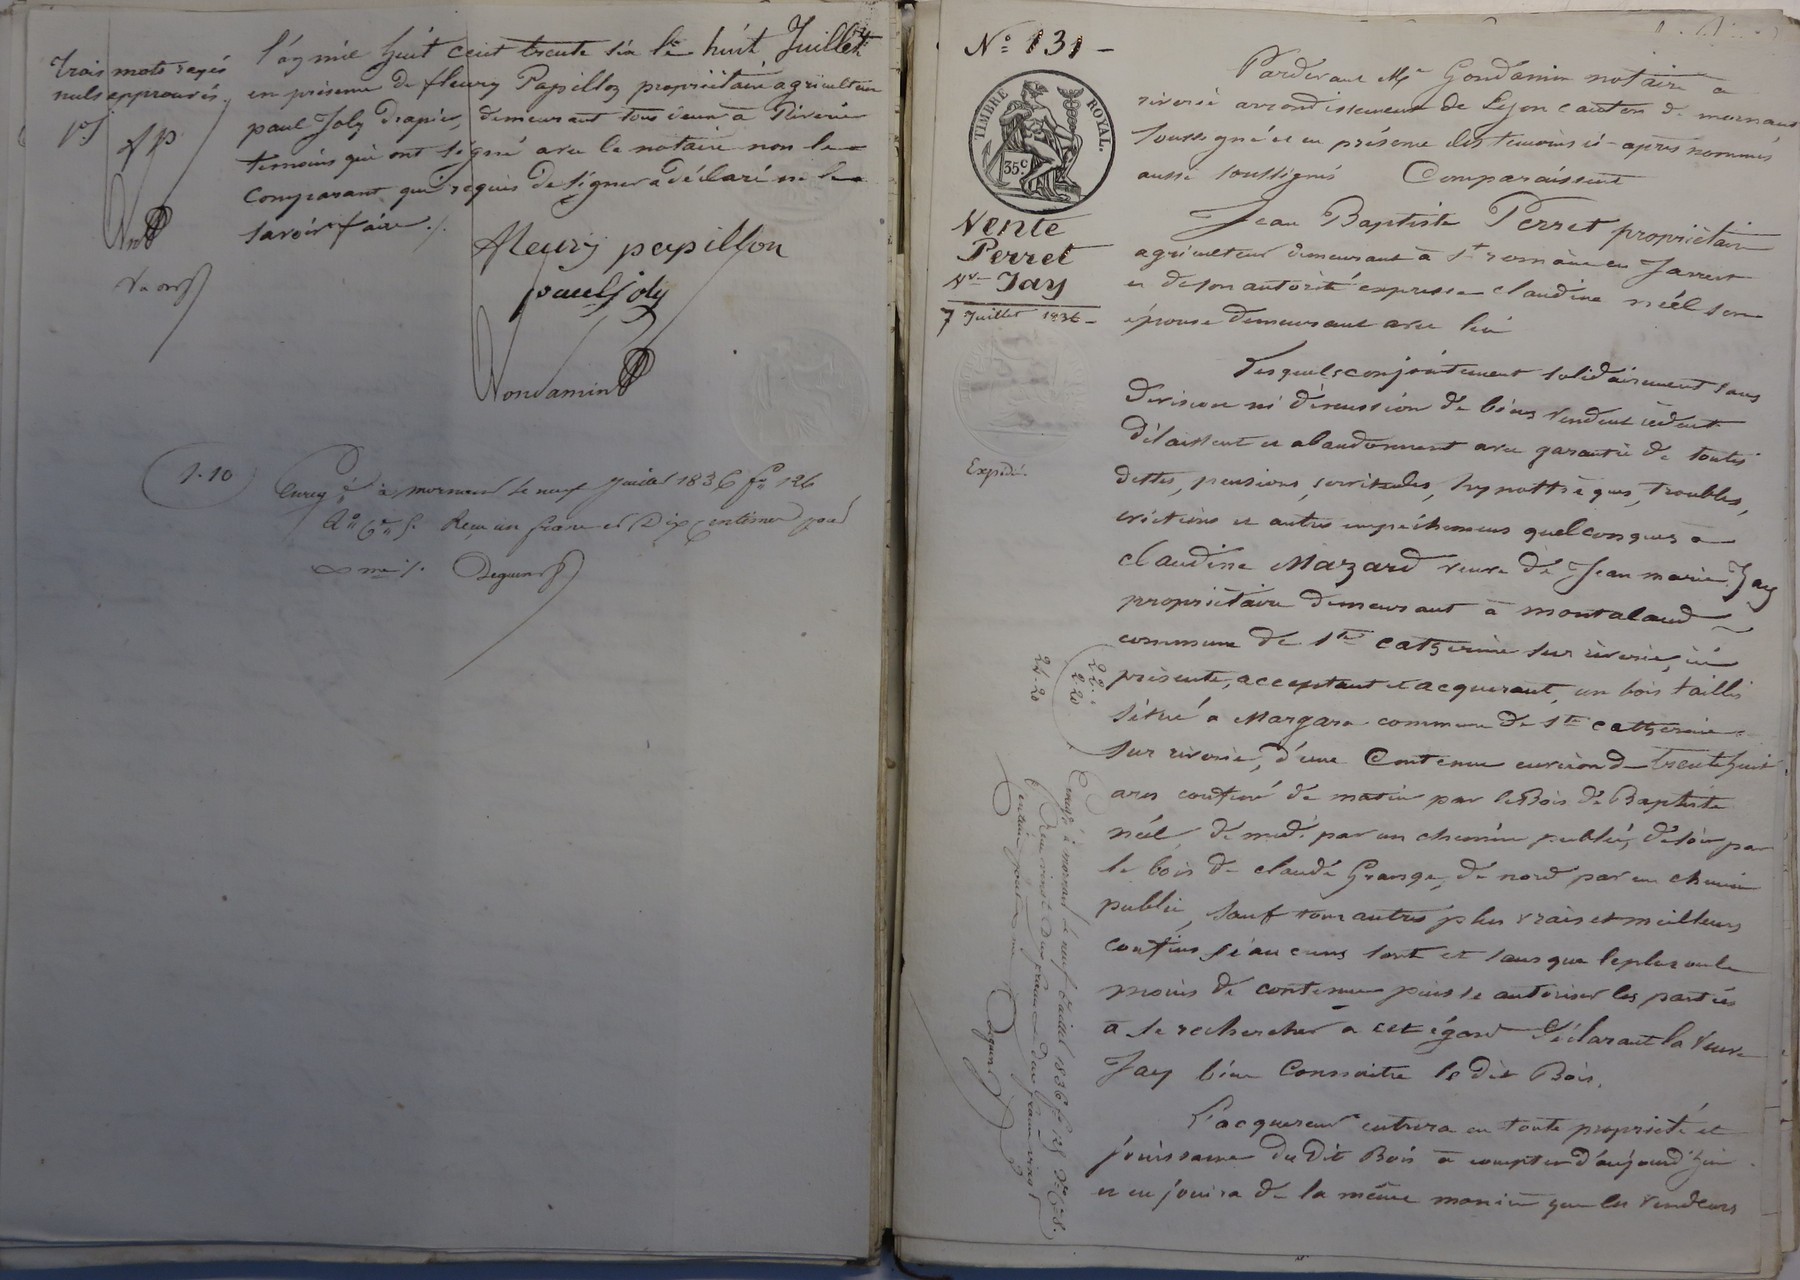 trois mots rayés
nuls approuvés
pJ
fp
l'an mil huit cent trente six le huit Juillet
en présence de fleury Papillon propriétaire agriculteur
paul Joly drapier, demeurant tous deux à Riverie
temoins qui ont signé avec le notaire non le
comparant qui requis de signer a déclaré ne le
savoir faire ./.
fleury papillon
paul joly
Gondamin
1.10
Enreg.é à mornant le neuf Juillet 1836 f.o 126
R.o C.es Reçu un franc et Dix centimes pour
Deguers
N.o 131 -
TIMBRE ROYAL.
35.c
Vente
Perret
Nve Jay
7 Juillet 1836 -
Expédié.
Pardevant Me Gondamin notaire à
riverie arrondissement de Lyon canton de mornant
soussigné et en présence des temoins ci-après nommés
aussi soussignés Comparaissent
Jean Baptiste Perret propriétaire
agriculteur demeurant à St romain en Jarrest
et de son autorité expresse claudine néel son
épouse demeurant avec lui
Lesquels conjointement solidairement sans
division ni discussion de biens vendent cèdent
délaissent et abandonnent avec garantie de toutes
dettes, pensions, servitudes, hypothèques, troubles,
évictions et autres empêchemens quelconques à
claudine Mazard veuve de Jean marie Jay
propriétaire demeurant à montaland
commune de Ste catherine sur riverie, ici
présente, acceptant et acquerant, un bois taillis
situé à Margara commune de Ste catherine
sur riverie, d'une Contenue environ de trente huit
ares confiné de matin par le Bois de Baptiste
néel, de midi par un chemin public, de soir par
le bois de claude Grange, de nord par un chemin
public, sauf tous autres plus vrais et meilleurs
confins si aucuns sont et sans que le plus ou le
moins de contenue puisse autoriser les parties
à se rechercher à cet égard déclarant la veuve
Jay bien Connaitre le dit Bois.
L'acquereur entrera en toute propriété et
jouissance du dit Bois à compter d'aujourd'hui
et en jouira de la même manière que les vendeurs
22.
2.20
24.20
Enreg.é à mornant le neuf Juillet 1836 f.o 125
Reçu vingt deux francs deux francs vingt
centimes pour
Deguers